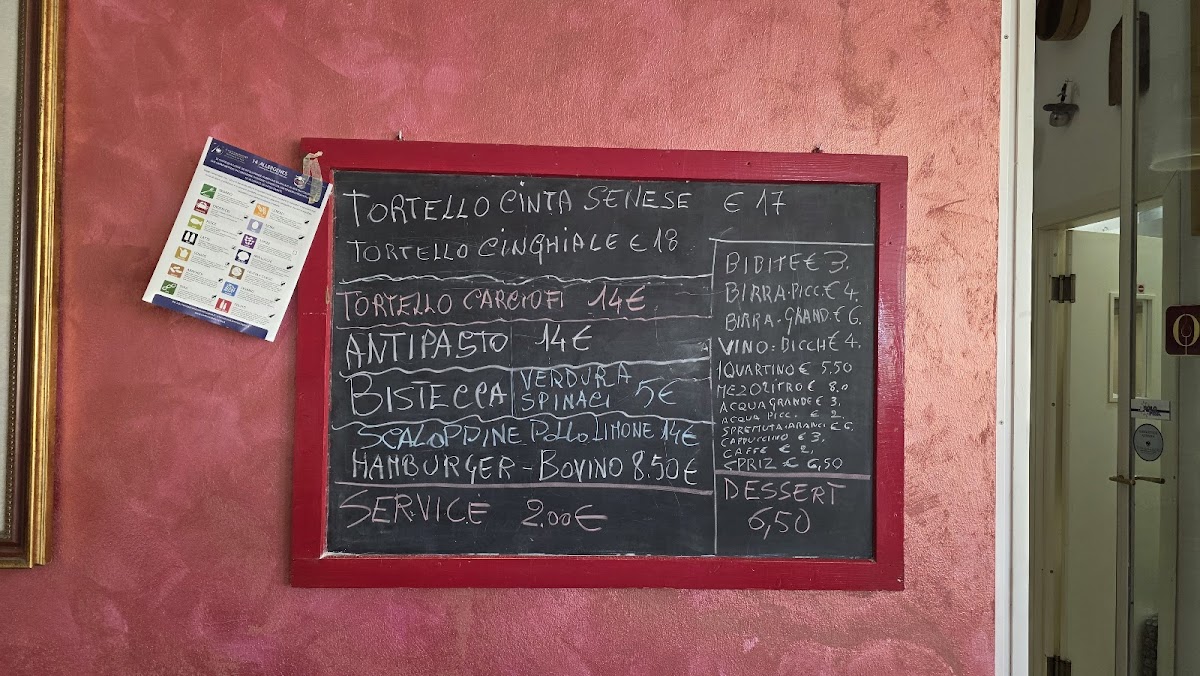 TORTELLO CINTA SENESE € 17
TORTELLO CINGHIALE € 18
TORTELLO CARCIOFI 14€
ANTIPASTO 14€
BISTECCA
VERDURA
SPINACI 5€
SCALOPPINE POLLO LIMONE 14€
HAMBURGER - BOVINO 8.50€
SERVICE 2.00€
BIBITE € 3.
BIRRA. PICC. € 4.
BIRRA. GRAND. € 6.
VINO: BICCH € 4.
1QUARTINO € 5.50
MEZO LITRO € 8.0
ACQUA GRANDE € 3.
ACQUA PICC. € 2.
SPREMUTA. ARANCI € 6.
CAPPUCCINO € 3.
CAFFE € 2.
SPRIZ € 6,50
DESSERT
6,50
14 ALLERGENS